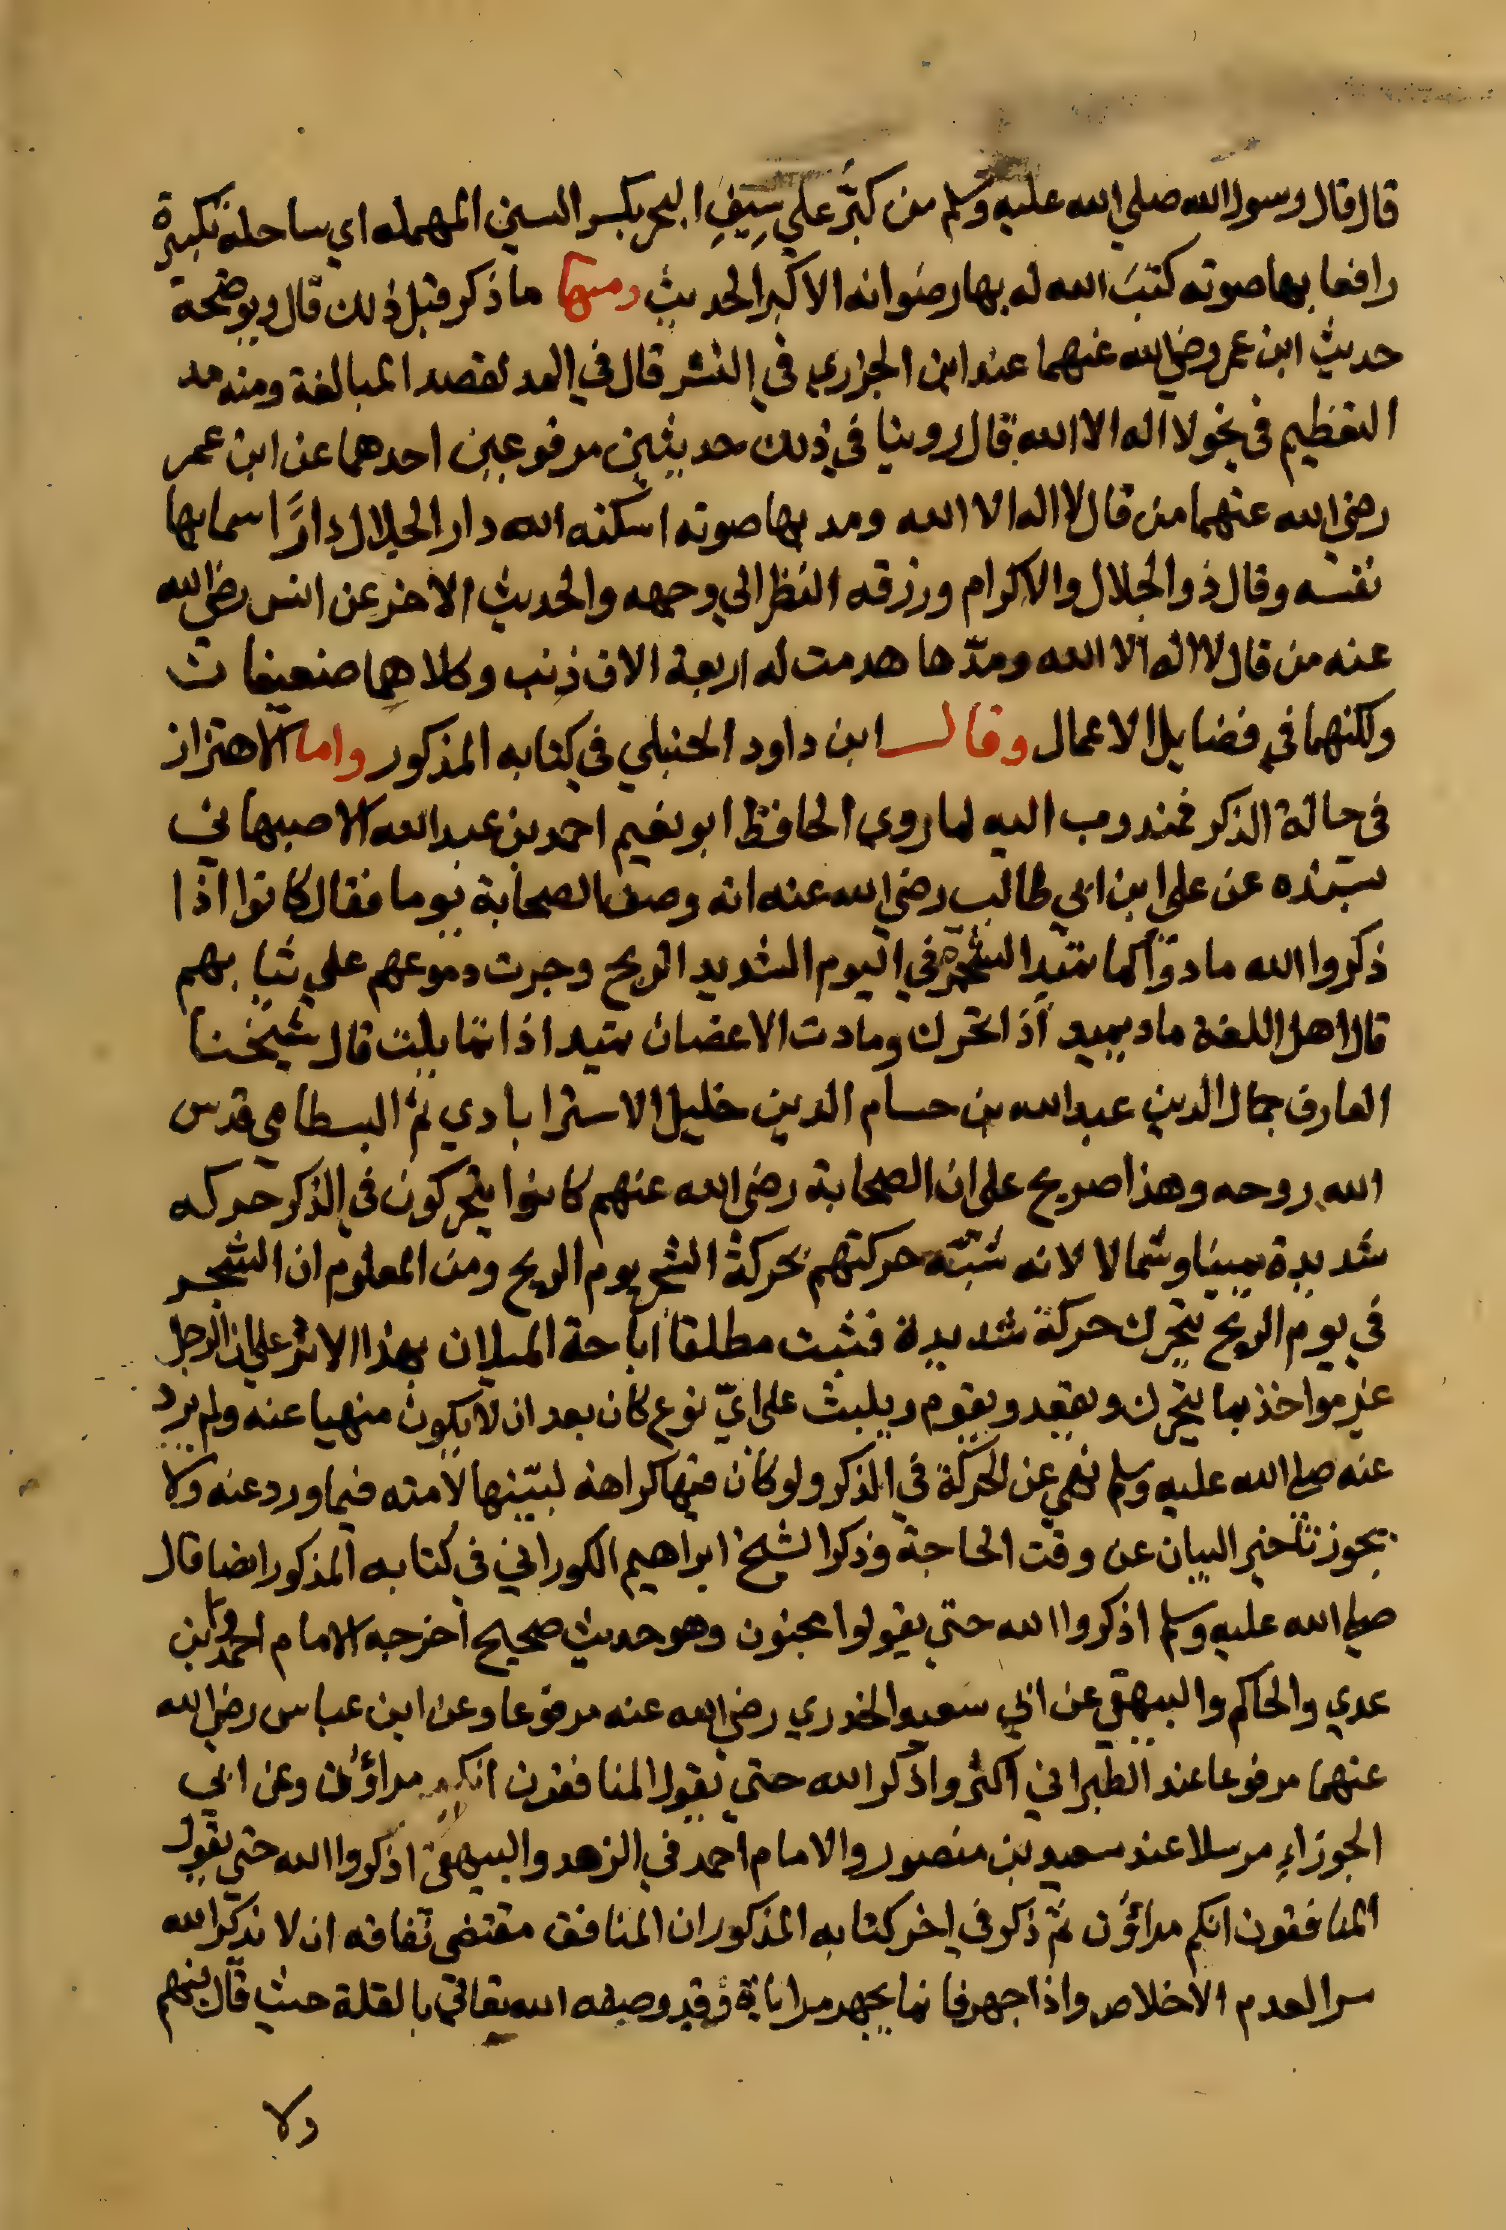 قال قال رسول الله صلي الله عليه وسلم من كبّر علي سِيفِ البحر بكسر السين المهمله اي ساحله تكبيرة
رافعا بها صوته كتبَ الله له بها رضوانه الاكبر الحديث ومنها ما ذكر قبل ذلك قال ويوضحه
حديث ابن عمر رضي الله عنهما عند ابن الجزري في النشر قال في المد لقصد المبالغة ومنه مد
التعظيم في نحو لا اله الا الله قال روينا في ذلك حديثين مرفوعين احدهما عن ابن عمر
رضي الله عنهما من قال لا اله الا الله ومد بها صوته اسكنه الله دار الجلال دارًا سما بها
نفسه وقال ذو الجلال والاكرام ورزقه النظر الي وجهه والحديث الاخر عن انس رضي الله
عنه من قال لا اله الا الله ومدّها هدمت له اربعة الاف ذنب وكلاهما ضعيفان
ولكنهما في فضايل الاعمال وقال ابن داود الحنبلي في كتابه المذكور واما الاهتزاز
في حالة الذكر فمندوب اليه لما روي الحافظ ابو نعيم احمد بن عبد الله الاصبهاني
بسنده عن علي ابن ابي طالب رضي الله عنه انه وصف الصحابة يوما فقال كانوا اذا
ذكروا الله مادوا كما تميد الشجرة في اليوم الشديد الريح وجرت دموعهم علي ثيابهم
قال اهل اللغة ماد يميد اذا تحرك ومادت الاغصان تميد اذا تمايلت قال شيخنا
العارف جمال الدين عبد الله بن حسام الدين خليل الاسترابادي ثم البسطامي قدس
الله روحه وهذا صريح علي ان الصحابة رضي الله عنهم كانوا يتحركون في الذكر حركه
شديدة يمينا وشمالا لانه شبّه حركتهم بحركة الشجر يوم الريح ومن المعلوم ان الشجر
في يوم الريح يتحرك حركة شديدة فثبت مطلقا اباحة الميلان بهذا الاثر علي ان الرجل
غير مواخذ بما يتحرك ويقعد ويقوم ويلبث علي ايّ نوع كان بعد ان لا يكون منهيا عنه ولم يرد
عنه صلي الله عليه وسلم نهي عن الحركة في الذكر ولو كان فيها كراهة لبيّنها لامته فيما ورد عنه ولا
يجوز تاخير البيان عن وقت الحاجة وذكر الشيخ ابراهيم الكوراني في كتابه المذكور ايضا قال
صلي الله عليه وسلم اذكروا الله حتي يقولوا مجنون وهو حديث صحيح اخرجه الامام احمد وابن
عدي والحاكم والبيهقي عن ابي سعيد الخدري رضي الله عنه مرفوعا وعن ابن عباس رضي الله
عنهما مرفوعا عند الطبراني اكثروا ذكر الله حتي يقول المنافقون انكم مراؤن وعن ابي
الجوزاءِ مرسلا عند سعيد بن منصور والامام احمد في الزهد والبيهقي اذكروا الله حتي يقول
المنافقون انكم مراؤن ثم ذكر في اخر كتابه المذكور ان المنافق مقتضي نفاقه ان لا يذكر الله
سرا لعدم الاخلاص واذا جهر فانما يجهر مراياة وقد وصفه الله تعالي بالقلة حيث قال فيهم
ولا